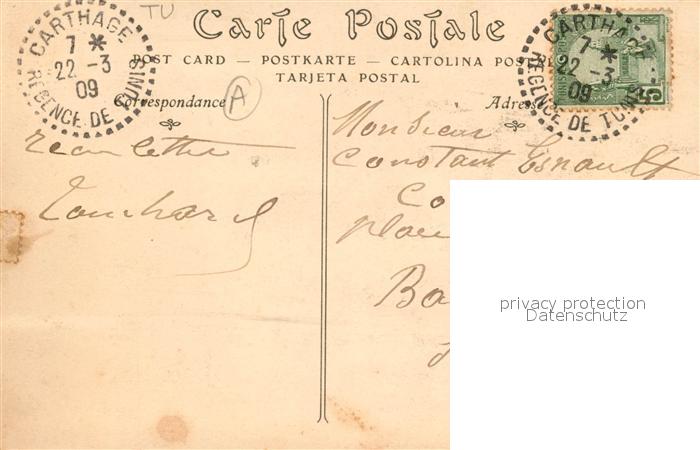 TU
Carte Postale
POST CARD — POSTKARTE — CARTOLINA POSTALE
TARJETA POSTAL
CARTHAGE
7 *
22 - 3
09
REGENCE DE TUNIS
CARTHAGE
7 *
22 - 3
09
REGENCE DE TUNIS
5
Correspondance
A
Adresse
lettre
Monsieur
Constant Esnault
Co
place
Ba
privacy protection
Datenschutz